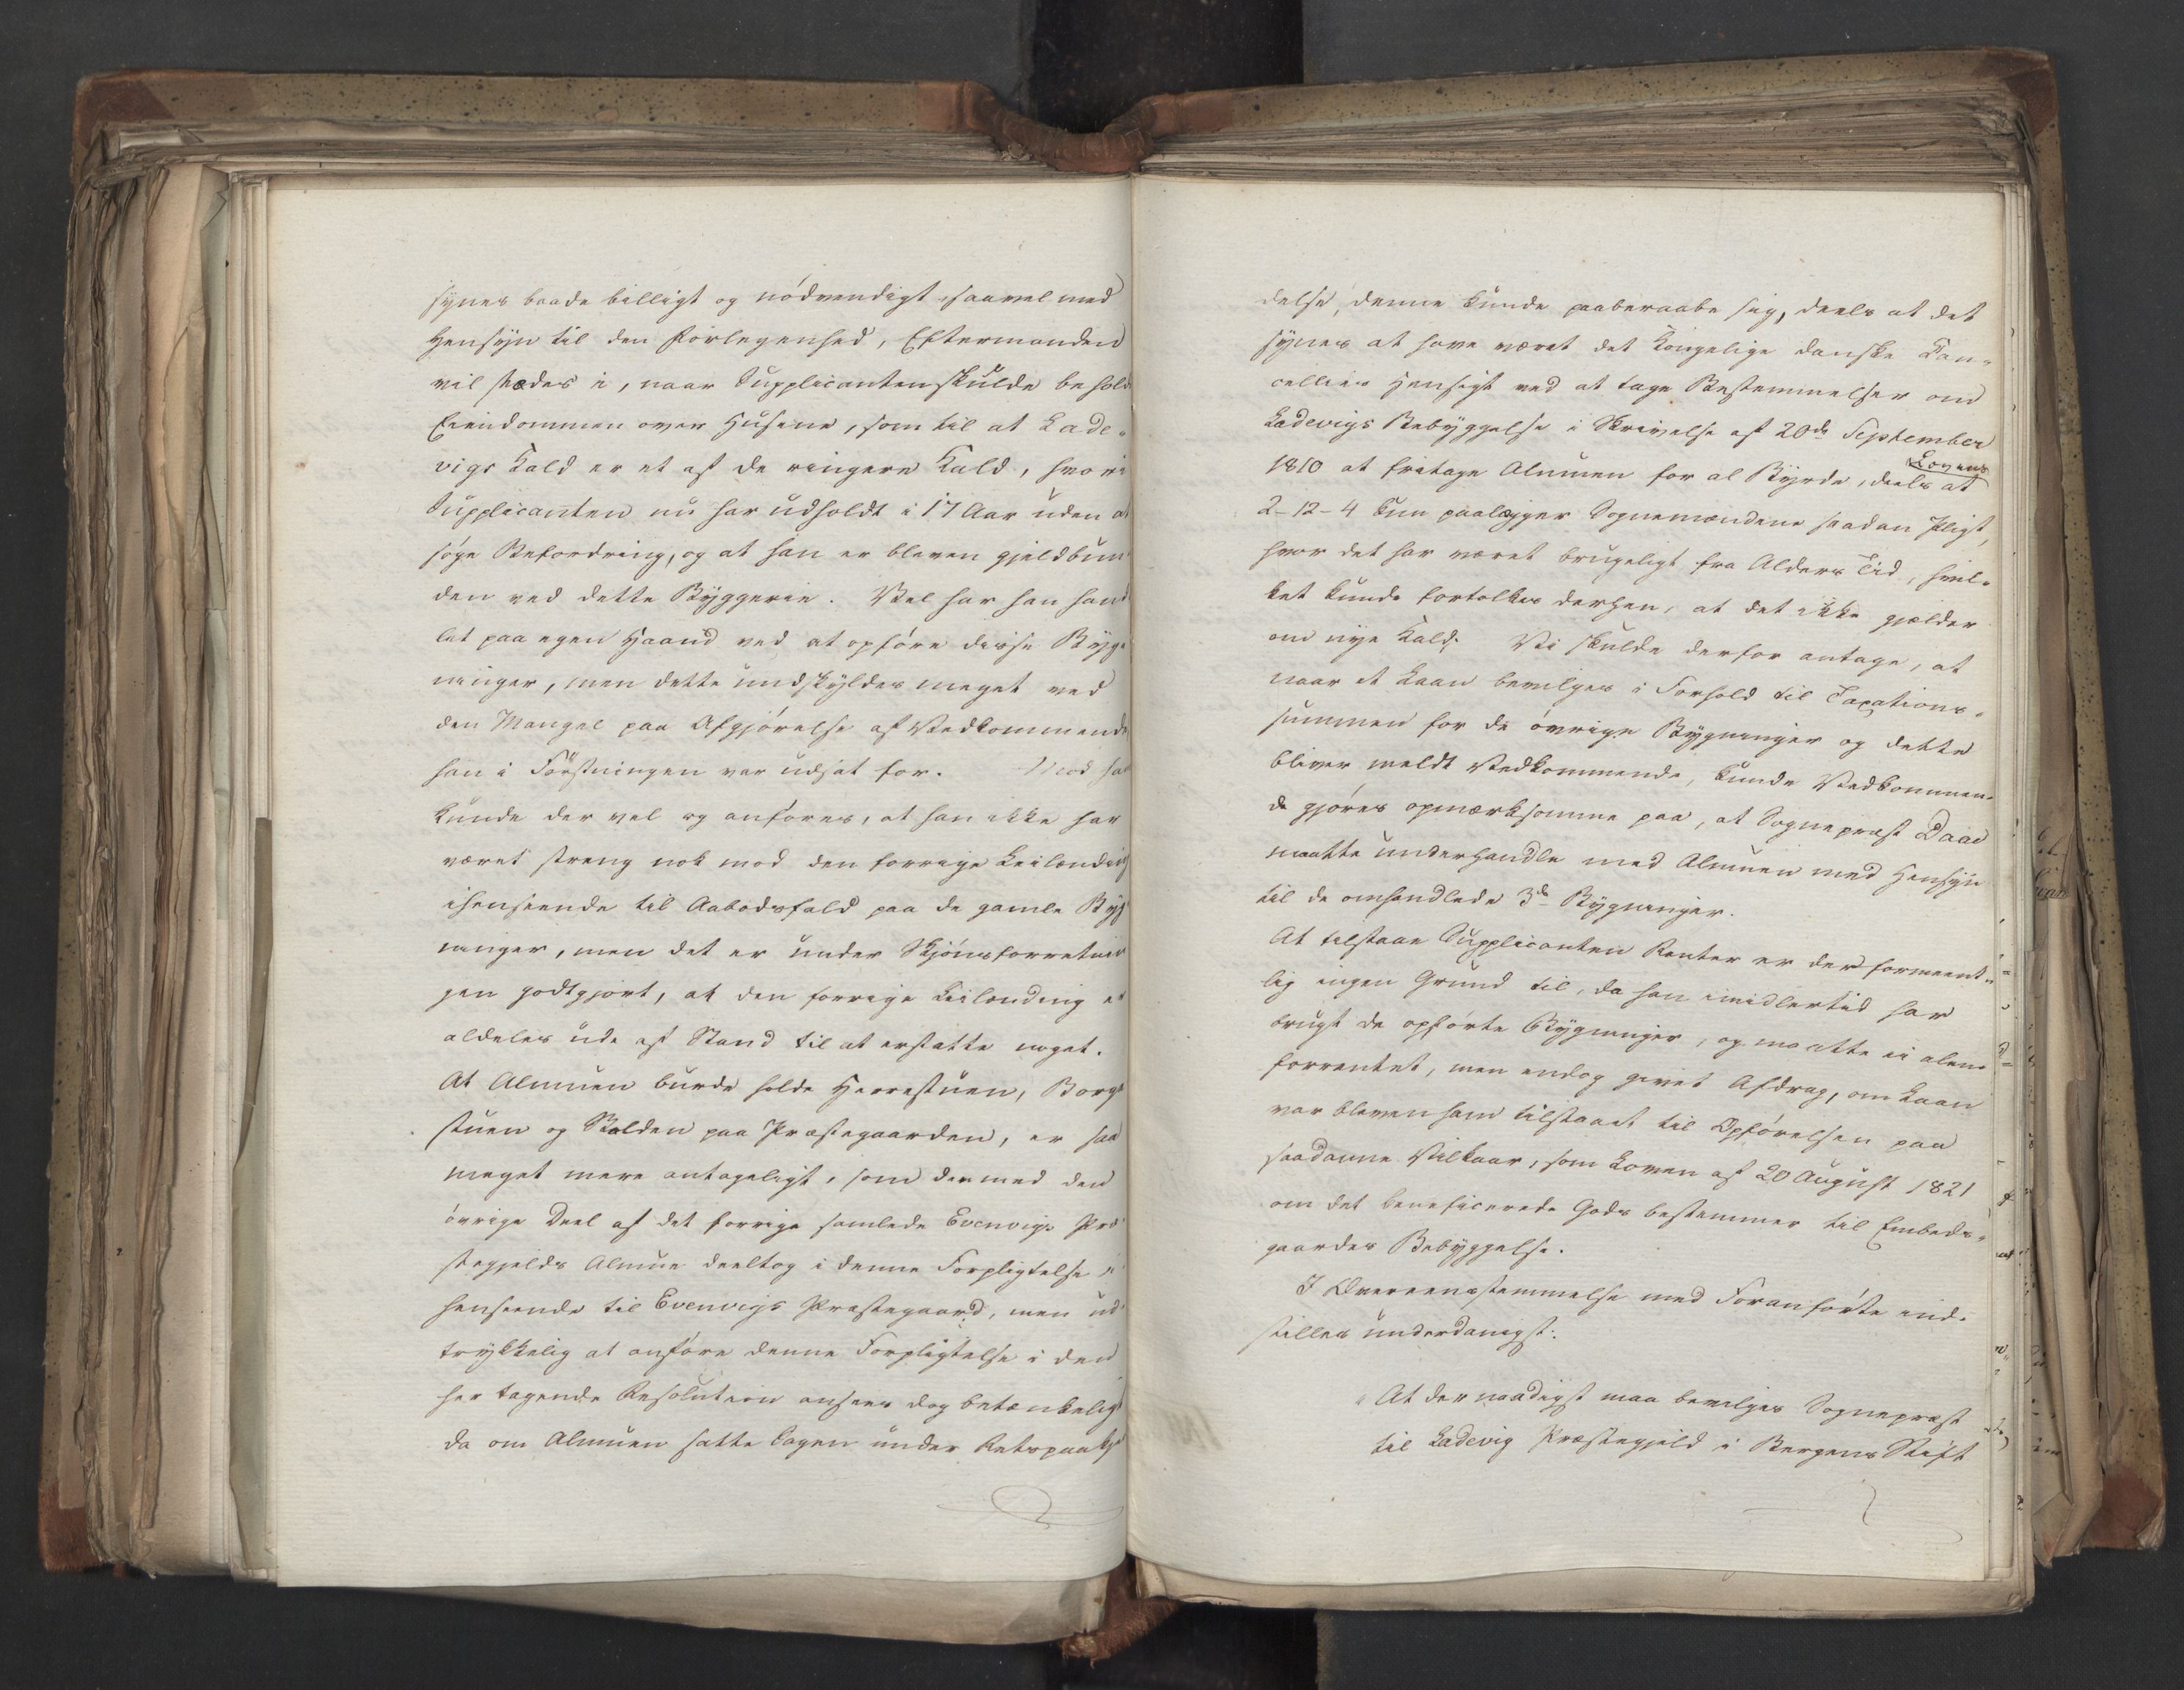 synes baade billigt og nødvendigt, saavel med
Hensyn til den Forlegenhed, Eftermanden
vil stædes i, naar Supplicanten skulde behold
Eiendommen over Husene, som til at Lade-
vigs Kald er et af de ringere Kald, hvori
Supplicanten nu har udholdt i 17 Aar uden at
søge Befordring, og at han er bleven gjeldbun
den ved dette Byggerie. Vel har han hand
let paa egen Haand ved at opføre disse Byg
ninger, men dette undskyldes meget ved
den Mangel paa Afgjørelse af Vedkommende
han i Førstningen var udsat for. Mod ham
kunde der vel og anføres, at han ikke har
været streng nok mod den forrige Leilænding
ihenseende til Aabodsfald paa de gamle Byg
ninger, men det er under Skjønsforretnin
gen godtgjort, at den forrige Leilænding er
aldeles ude af Stand til at erstatte noget.
At Almuen burde holde Herrestuen, Borge
stuen og Stalden paa Præstegaarden, er saa
meget mere antageligt, som den med den
øvrige Deel af det forrige samlede Evenvigs Præ
stegjelds Almue deeltog i denne Forpligtelse i
henseende til Evenvigs Præstegaard, men ud
trykkelig at anføre denne Forpligtelse i den
her tagende Resolution ansees dog betænkelig
da om Almuen satte Sagen under Retspaakje
delse, denne kunde paaberaabe sig, deels at det
synes at have været det Kongelige danske Can-
cellies Hensigt ved at tage Bestemmelser om
Ladevigs Bebyggelse i Skrivelse af 20de September
1810 at fritage Almuen for al Byrde, deels at Lovens
2-12-4 kun paalægger Sognemændene saadan Pligt,
hvor det har været brugeligt fra Alders Tid, hvil-
ket kunde fortolkes derhen, at det ikke gjelder
om nye Kald. Vi skulde derfor antage, at
naar et Laan bevilges i Forhold til Taxations-
summen for de øvrige Bygninger og dette
bliver meldt Vedkommende, kunde Vedkommen-
de gjøres opmærksomme paa, at Sognepræst Daae
maatte underhandle med Almuen med Hensyn
til de omhandlede 3de Bygninger.
At tilstaae Supplicanten Renter er der formeent-
lig ingen Grund til, da han imidlertid har
brugt de opførte Bygninger, og maatte ei alene
forrentet, men endog givet Afdrag, om Laan
var bleven ham tilstaaet til Opførelsen paa
saadanne Vilkaar, som Loven af 20 August 1821
om det beneficerede Gods bestemmer til Embeds-
gaardes Bebyggelse.
I Overeensstemmelse med Foranførte ind-
stilles underdanigst:
At der naadigst maa bevilges Sognepræst
til Ladevig Præstegjeld i Bergens Stift